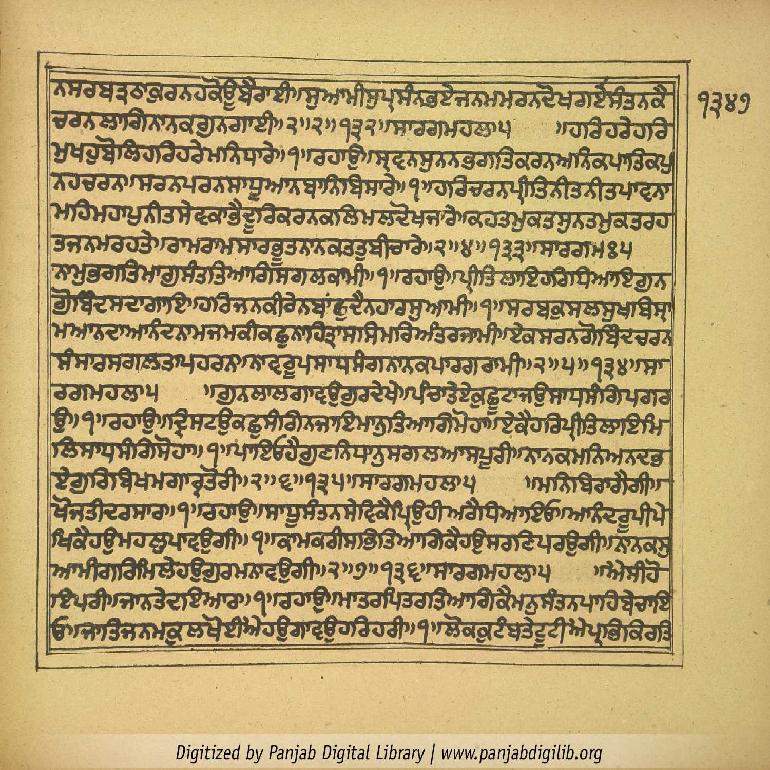 ਨਸਰਬਤ੍ਰਠਾਕੁਰਨਹਕੋਊਬੈਰਾਈ॥ਸੁਆਮੀਸੁਪ੍ਰਸੰਨਭਏਜਨਮਮਰਨਦੋਖਗਏਸੰਤਨਕੈ
ਚਰਨਲਾਗਿਨਾਨਕਗੁਨਗਾਈ॥੨॥੨॥੧੩੨॥ਸਾਰਗਮਹਲਾ੫ ॥ਹਰਿਹਰੇਹਰਿ
ਮੁਖਹੁਬੋਲਿਹਰਿਹਰੇਮਨਿਧਾਰੇ॥੧॥ਰਹਾਉ॥ਸ੍ਰਵਨਸੁਨਨਭਗਤਿਕਰਨਅਨਿਕਪਾਤਿਕਪੁ
ਨਹਚਰਨ॥ਸਰਨਪਰਨਸਾਧੂਆਨਬਾਨਿਬਿਸਾਰੇ॥੧॥ਹਰਿਚਰਨਪ੍ਰੀਤਿਨੀਤਨੀਤਪਾਵਨਾ
ਮਹਿਮਹਾਪੁਨੀਤਸੇਵਕਭੈਦੂਰਿਕਰਨਕਲਿਮਲਦੋਖਜਾਰੇ॥ਕਹਤਮੁਕਤਸੁਨਤਮੁਕਤਰਹ
ਤਜਨਮਰਹਤੇ॥ਰਾਮਰਾਮਸਾਰਭੂਤਨਾਨਕਤਤੁਬੀਚਾਰੇ॥੨॥੪॥੧੩੩॥ਸਾਰਗਮਃ੫
ਨਾਮਭਗਤਿਮਾਗੁਸੰਤਤਿਆਗਿਸਗਲਕਾਮੀ॥੧॥ਰਹਾਉ॥ਪ੍ਰੀਤਿਲਾਇਹਰਿਧਿਆਇਗੁਨ
ਗੋਬਿੰਦਸਦਾਗਾਇ॥ਹਰਿਜਨਕੀਰੇਨਬਾਂਛੁਦੈਨਹਾਰਸੁਆਮੀ॥੧॥ਸਰਬਕੁਸਲਸੁਖਬਿਸ੍ਰਾ
ਮਆਨਦਾਆਨੰਦਨਾਮਜਮਕੀਕਛੁਨਾਹਿਤ੍ਰਾਸਸਿਮਰਿਅੰਤਰਜਾਮੀ॥ਏਕਸਰਨਗੋਬਿੰਦਚਰਨ
ਸੰਸਾਰਸਗਲਤਾਪਹਰਨ॥ਨਾਵਰੂਪਸਾਧਸੰਗਨਾਨਕਪਾਰਗਰਾਮੀ॥੨॥੫॥੧੩੪॥ਸਾ
ਰਗਮਹਲਾ੫ ॥ਗੁਨਲਾਲਗਾਵਉਗੁਰਦੇਖੇ॥ਪੰਚਾਤੇਏਕੁਛੂਟਾਜਉਸਾਧਸੰਗਿਪਗਰ
ਉ॥੧॥ਰਹਾਉ॥ਦ੍ਰਿਸਟਉਕਛੁਸੰਗਿਨਜਾਇਮਾਨੁਤਿਆਗਿਮੋਹਾ॥ਏਕੈਹਰਿਪ੍ਰੀਤਿਲਾਇਮਿ
ਲਿਸਾਧਸੰਗਿਸੋਹਾ॥੧॥ਪਾਇਓਹੈਗੁਣਨਿਧਾਨੁਸਗਲਆਸਪੂਰੀ॥ਨਾਨਕਮਨਿਅਨਦਭ
ਏਗੁਰਿਬਿਖਮਗਾਰ੍ਹਤੋਰੀ॥੨॥੬॥੧੩੫॥ਸਾਰਗਮਹਲਾ੫ ॥ਮਨਿਬਿਰਾਗੈਗੀ॥
ਖੋਜਤੀਦਰਸਾਰ॥੧॥ਰਹਾਉ॥ਸਾਧੂਸੰਤਨਸੇਵਿਕੈਪ੍ਰਿਉਹੀਅਰੈਧਿਆਇਓ॥ਆਨੰਦਰੂਪੀਪੇ
ਖਿਕੈਹਉਮਹਲੁਪਾਵਉਗੀ॥੧॥ਕਾਮਕਰੀਸਭਿਤਿਆਗਿਕੈਹਉਸਰਣਿਪਰਉਗੀ॥ਨਾਨਕਸੁ
ਆਮੀਗਰਿਮਿਲੇਹਉਗੁਰਮਨਾਵਉਗੀ॥੨॥੭॥੧੩੬॥ਸਾਰਗਮਹਲਾ੫ ॥ਐਸੀਹੋ
ਇਪਰੀ॥ਜਾਨਤੇਦਇਆਰ॥੧॥ਰਹਾਉ॥ਮਾਤਰਪਿਤਰਤਿਆਗਿਕੈਮਨੁਸੰਤਨਪਾਹਿਬੇਚਾਇ
ਓ॥ਜਾਤਿਜਨਮਕੁਲਖੋਈਐਹਉਗਾਵਉਹਰਿਹਰੀ॥੧॥ਲੋਕਕੁਟੰਬਤੇਟੂਟੀਐਪ੍ਰਭਕਿਰਤਿ
੧੩੪੭
Digitized by Panjab Digital Library | www.panjabdigilib.org